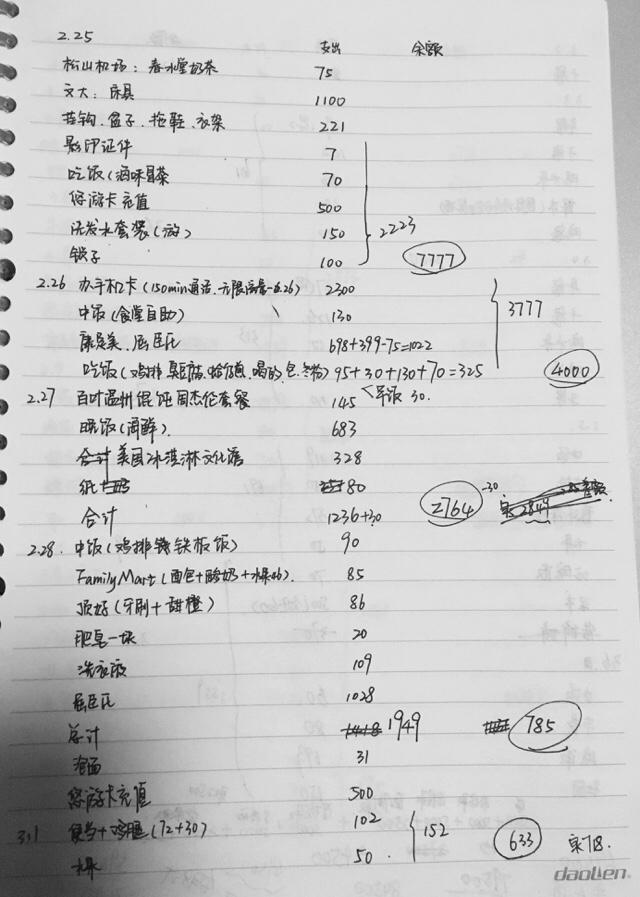 2.25
支出 余额
松山机场：春水堂奶茶 75
文大：床具 1100
苦钩、盆子、拖鞋、衣架 221
影印证件 7
吃饭（卤味冒菜 70
悠游卡充值 500
洗发水套装（游） 150 2223
锁子 100 7777
2.26 办手机卡（150min通话、无限流量-6.26） 2300
中饭（食堂自助） 130 3777
康是美、屈臣氏 698+399-75=1022
吃饭（鸡排、臭豆腐、喝的、包、） 95+30+130+70=325 4000
2.27 百叶温州馄饨周杰伦套餐 145 <早饭 30.
晚饭（海鲜）. 683
美国冰淇淋文化馆 328
纸 80
合计 1236+30 2764 -30
2.28. 中饭（鸡排铁板饭） 90
FamilyMart（面包+酸奶+水果46）. 85
顶好（牙刷+甜橙） 86
肥皂一块 20
洗衣液 109
屈臣氏 1028
总计 1949 785
泡面 31
悠游卡充值 500
3.1 便当+鸡腿（72+30） 102 152 633 实718.
水果 50
daolien.